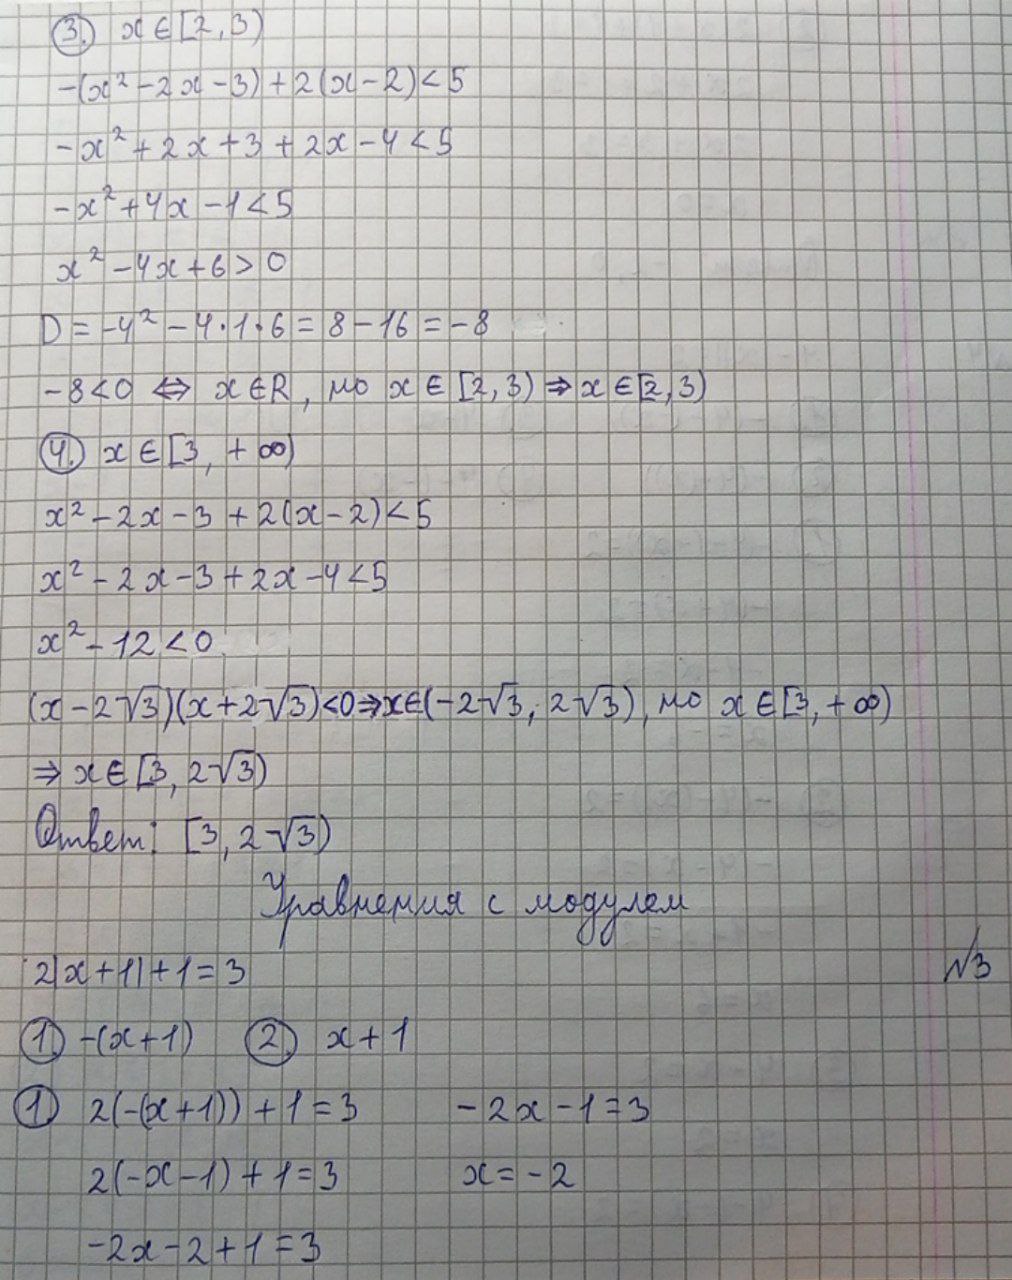 3. x ∈ [2, 3)
-(x² - 2x - 3) + 2(x - 2) < 5
-x² + 2x + 3 + 2x - 4 < 5
-x² + 4x - 1 < 5
x² - 4x + 6 > 0
D = -4² - 4·1·6 = 8 - 16 = -8
-8 < 0 ⇔ x ∈ R, но x ∈ [2, 3) ⇒ x ∈ [2, 3)
4. x ∈ [3, +∞)
x² - 2x - 3 + 2(x - 2) < 5
x² - 2x - 3 + 2x - 4 < 5
x² - 12 < 0
(x - 2√3)(x + 2√3) < 0 ⇒ x ∈ (-2√3; 2√3), но x ∈ [3, +∞)
⇒ x ∈ [3, 2√3)
Ответ: [3, 2√3)
Уравнения с модулем
2|x + 1| + 1 = 3 №3
1. -(x + 1) 2. x + 1
1. 2(-(x + 1)) + 1 = 3 -2x - 1 = 3
2(-x - 1) + 1 = 3 x = -2
-2x - 2 + 1 = 3